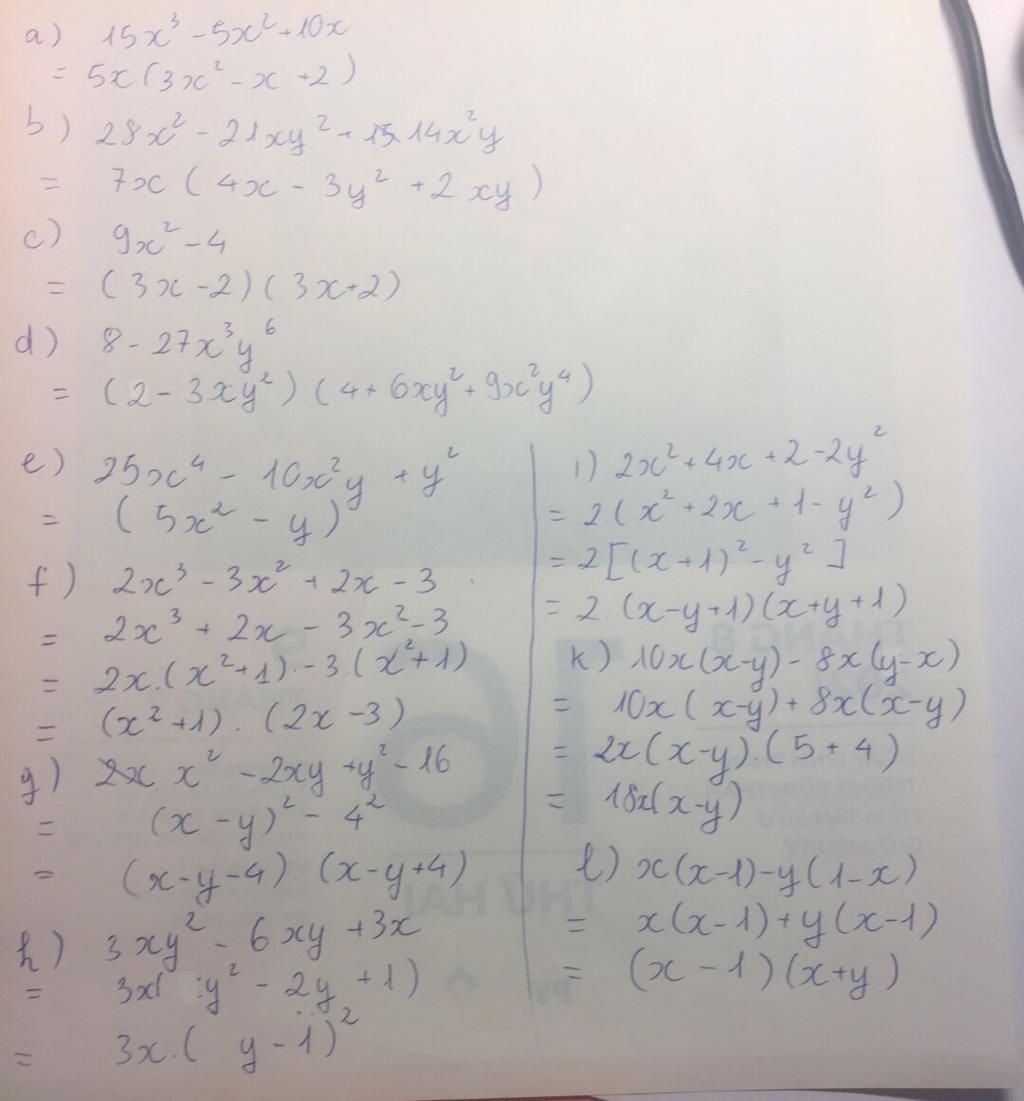 a) 15x³ - 5x² + 10x
= 5x(3x² - x + 2)
b) 28x² - 21xy² + 14x²y
= 7x ( 4x - 3y² + 2xy )
c) 9x² - 4
= (3x - 2)(3x + 2)
d) 8 - 27x³y⁶
= (2 - 3xy²).(4 + 6xy² + 9x²y⁴)
e) 25x⁴ - 10x²y + y²
= (5x² - y)
f) 2x³ - 3x² + 2x - 3
= 2x³ + 2x - 3x² - 3
= 2x.(x² + 1) - 3.(x² + 1)
= (x² + 1).(2x - 3)
g) x² - 2xy + y² - 16
= (x - y)² - 4²
= (x - y - 4).(x - y + 4)
h) 3xy² - 6xy + 3x
= 3x( y² - 2y + 1)
= 3x.( y - 1)²
i) 2x² + 4x + 2 - 2y²
= 2.(x² + 2x + 1 - y²)
= 2[(x + 1)² - y²]
= 2.(x - y + 1)(x + y + 1)
k) 10x(x - y) - 8x(y - x)
= 10x(x - y) + 8x(x - y)
= 2x(x - y).(5 + 4)
= 18x(x - y)
l) x(x - 1) - y(1 - x)
= x(x - 1) + y(x - 1)
= (x - 1)(x + y)
THỨ HAI
16
THÁNG 8